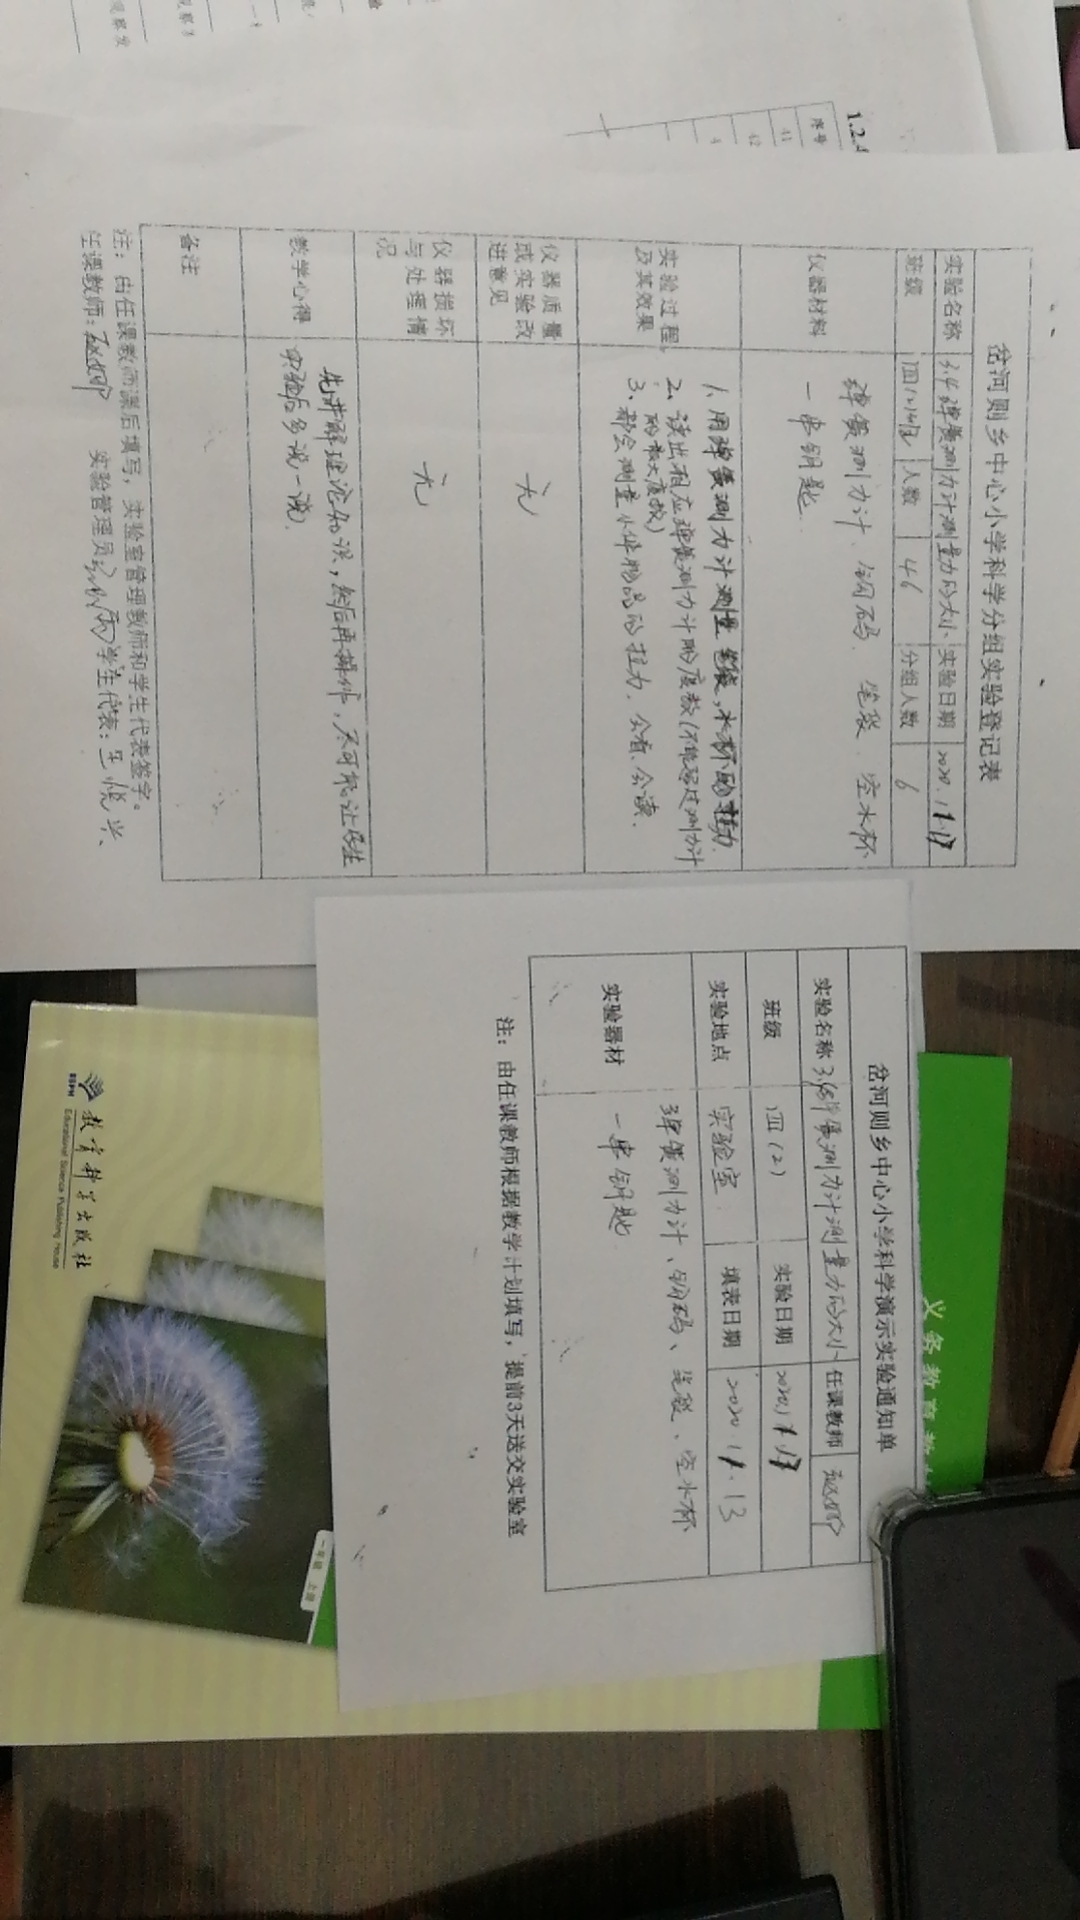 1.2.4
序号
41
42
岔河则乡中心小学科学分组实验登记表
实验名称 3.4弹簧测力计测量力的大小 实验日期
班级 四(2)班 人数 46 分组人数 6
仪器材料 弹簧测力计、钩码、笔袋、空水杯
一串钥匙
实验过程及其效果
1、用弹簧测力计测量笔袋,水杯的拉力.
2、读出相应弹簧测力计的度数(不能超过测力计
的最大度数)
3、都会测量小件物品的拉力.会看、会读.
仪器质量或实验改进意见 无
仪器损坏与处理情况 无
教学心得 先讲解理论知识,然后再操作,尽可能让学生
实验后多说一说.
备注
注:由任课教师课后填写,实验室管理教师和学生代表签字。
任课教师: 实验管理员: 学生代表:王悦兴
岔河则乡中心小学科学演示实验通知单
实验名称 弹簧测力计测量力的大小 任课教师
班级 四(2) 实验日期
实验地点 实验室 填表日期 2020.11.13
实验器材 弹簧测力计、钩码、笔袋、空水杯
一串钥匙
注:由任课教师根据教学计划填写,提前3天送交实验室
义务教育教
教育科学出版社
Educational Science Publishing House
ESPH
一年级 上册